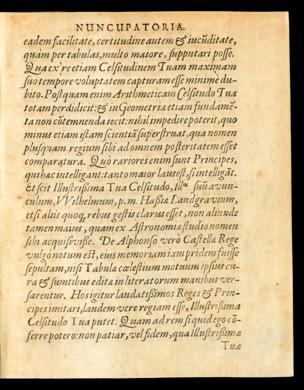 NVNCVPATORIA.
eadem facilitate, certitudine autem & iucūditate,
quàm per tabulas, multo maiore, supputari posse.
Qua ex re etiam Celsitudinem Tuam maximam
suo tempore voluptatem capturam esse minimè du-
bito. Postquam enim Arithmeticam Celsitudo Tua
totam perdidicit: & in Geometria etiam fundamē-
ta non cōtemnenda iecit: nihil impedire poterit, quo
minus etiam istam scientiā superstruat, qua nomen
plusquam regium sibi ad omnem posteritatem esset
comparatura. Quò rariores enim sunt Principes,
qui hæc intelligant: tanto maior laus est, si intelligāt.
Et scit Illustrißima Tua Celsitudo, Illmū suū avun-
culum, Wilhelmum, p. m. Haßiæ Landgravium,
etsi aliis quoq, rebus gestis clarus esset, non aliunde
tamen maius, quam ex Astronomiæ studio nomen
sibi acquisivisse. De Alphonso verò Castellæ Rege
vulgo notum est, eius memoriam iam pridem fuisse
sepultam, nisi Tabulæ cælestium motuum ipsius cu-
ra & sumtibus edita in literatorum manibus ver-
sarentur. Hos igitur laudatißimos Reges & Prin-
cipes imitari, laudem vere regiam esse, Illustrißima
Celsitudo Tua putet. Quam ad rem si quid ego cō-
ferre potero: non patiar, vel fidem, qua illustrißimæ
Tuæ